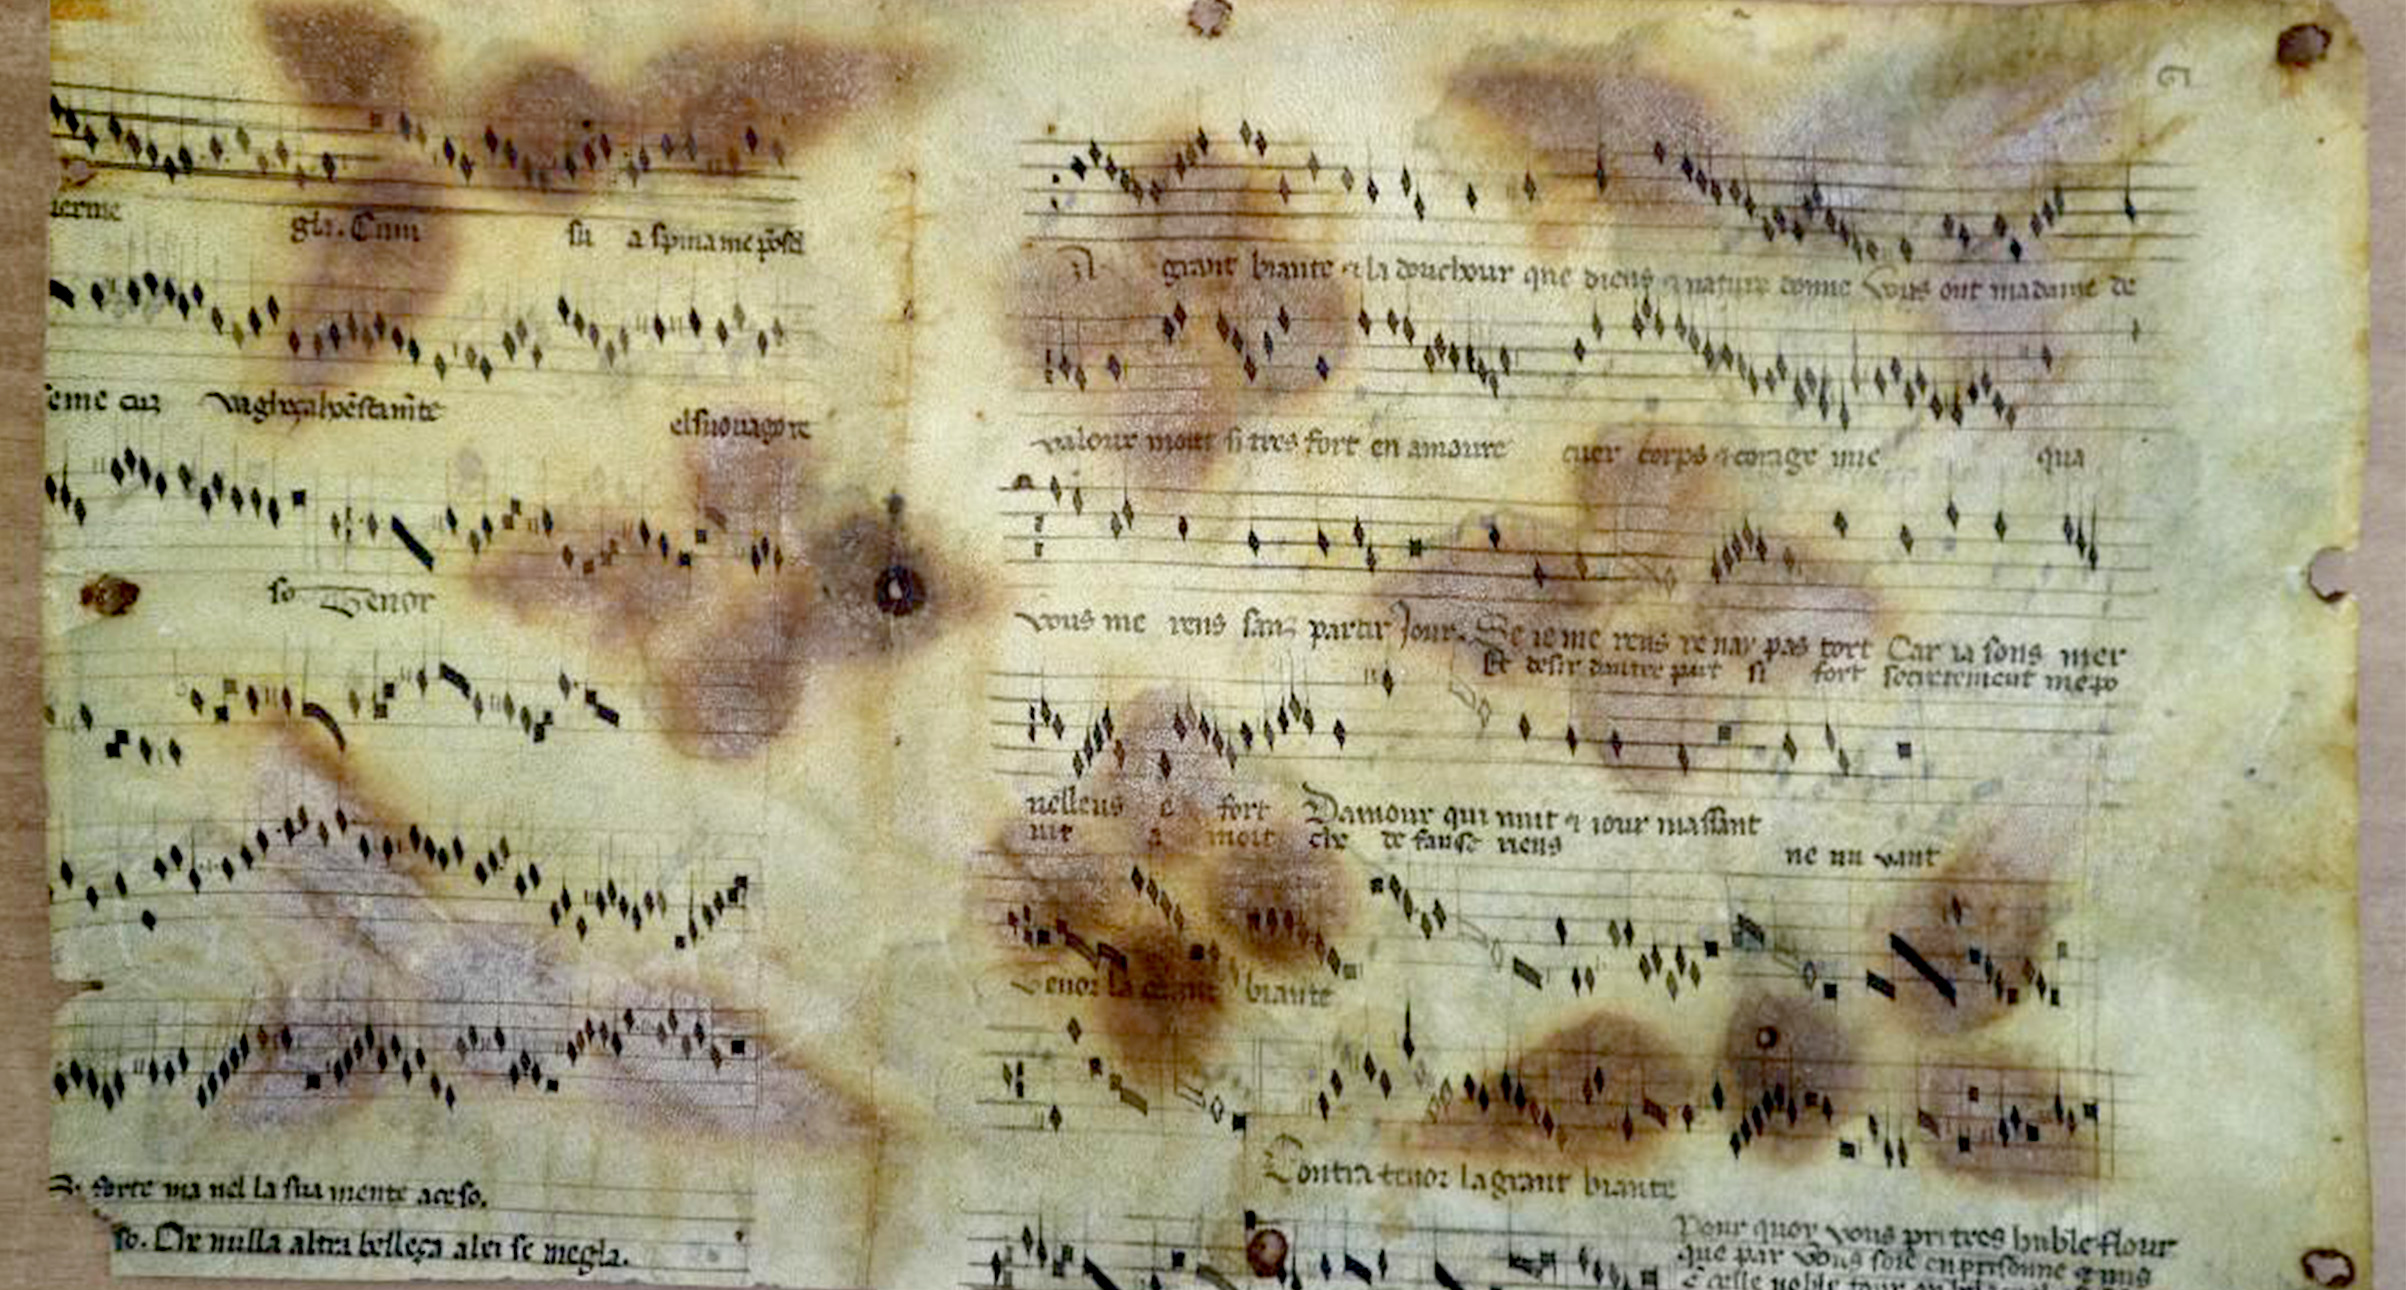 uerme gla. Cum su a spina me posa
seme cuz vagheçal vestimte el suo uagore
so Tenor
forte ma nel la sua mente aceso.
so. Che nulla altra belleça alei se megla.
grant biaute & la douchour que dieus & nature donne Vous ont madame de
valour mout si tres fort en amoure cuer corps & corage mie qua
vous me rens sanz partir Jour. Se ie me rens ie nay pas tort Car ia sons mer
Et desir dautre part si fort secretement me po
uelleus e fort Damour qui nuit & iour massaut
int a mort che de fause riens ne un vant
Tenor La grant biaute
Contratenor la grant biaute
Pour quoy vous pri tres huble flour
que par vous soie enprisonne & mis